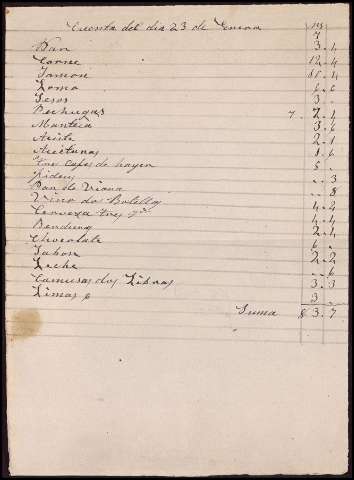 Cuenta del dia 23 de Enero
Pan 3 . 4
Carne 12 . 4
Jamon
Lomo 6 . 6
Sesos 3 .
Pechugas 7 . 7 . 1
Manteca 3 . 6
Aceite 2 . 1
Aceitunas 1 . 6
5 .
Fideos .. 3
Pan de Viena .. 8
Vino dos Botellas 4 . 4
Cerveza tres 4 . 4
2 . 4
Chocolate 6 .
Jabon 2 . 2
Leche .. 6
Camuesas dos Libras 3 . 3
Limas 6 3
Suma 8 3 . 7